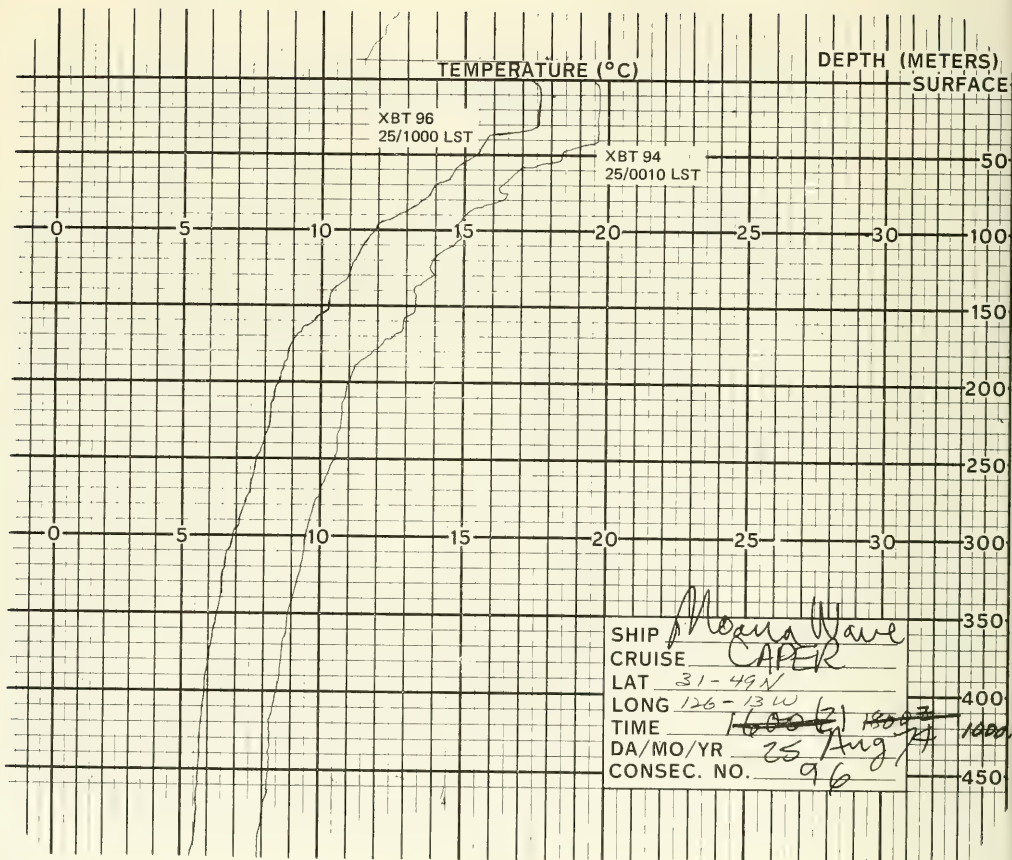 TEMPERATURE (°C)
DEPTH (METERS)
SURFACE
XBT 96
25/1000 LST
XBT 94
25/0010 LST
50
0 5 10 15 20 25 30 100
150
200
250
0 5 10 15 20 25 30 300
350
400
450
SHIP Moana Wave
CRUISE CAPER
LAT 31-49N
LONG 126-13W
TIME 1000
DA/MO/YR 25 Aug 74
CONSEC. NO. 96